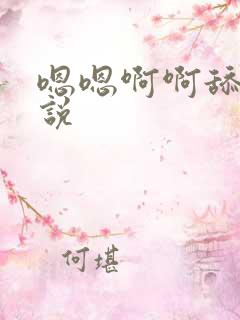 嗯嗯啊啊舔
説
何堪